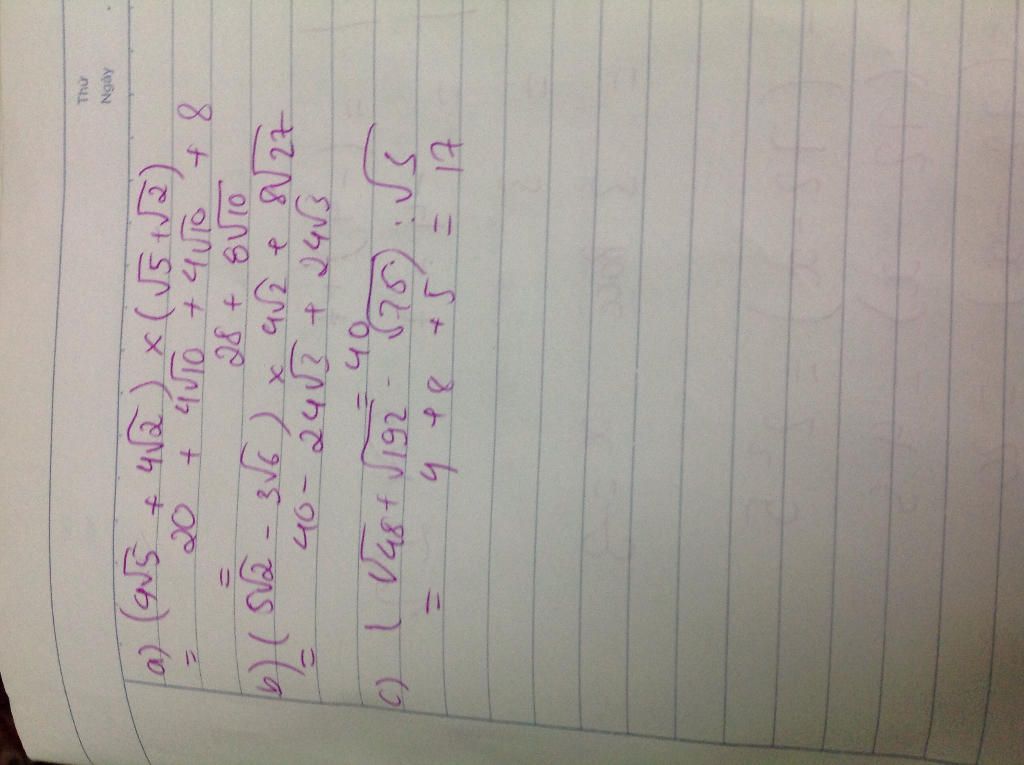 Thứ
Ngày
a) (4√5 + 4√2) x (√5 + √2)
= 20 + 4√10 + 4√10 + 8
= 28 + 8√10
b) (5√2 - 3√6) x 4√2 + 8√27
= 40 - 24√3 + 24√3
= 40
c) (√48 + √192 - √75) : √3
= 4 + 8 + 5 = 17